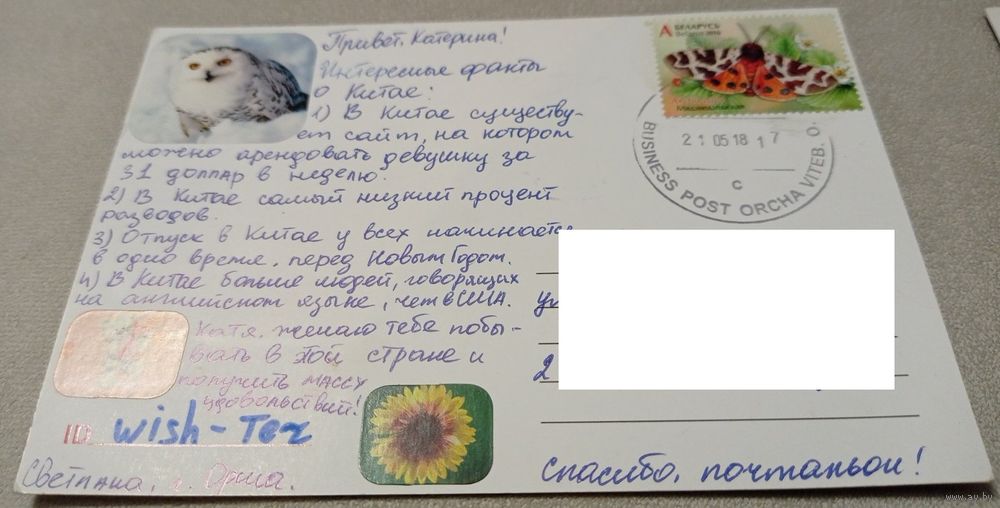 Привет, Катерина!
Интересные факты
о Китае:
1) В Китае существу-
ет сайт, на котором
можно арендовать девушку за
31 доллар в неделю.
2) В Китае самый низкий процент
разводов.
3) Отпуск в Китае у всех начинается
в одно время, перед Новым Годом.
4) В Китае больше людей, говорящих
на английском языке, чем в США.
Катя, желаю тебе побы-
вать в этой стране и
получить массу
удовольствий!
ID wish-Tez
Светлана, г. Орша.
А БЕЛАРУСЬ
Belarus
21 05 18 17
С
BUSINESS POST ORCHA VITEB. O.
ул
2
Спасибо, почтальон!
www.av.by